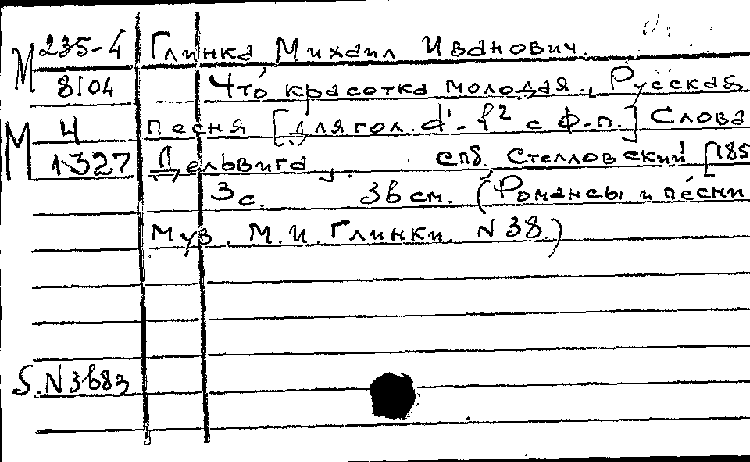 М 235-4 Глинка Михаил Иванович.
8104 Что красотка молодая, Русская
М Ч песня [для гол. d¹-f² с ф-п.] Слова
1327 Дельвига, спб. Стелловский [185
3 с. 36 см. (Романсы и песни
Муз. М.И. Глинки N 38.)
S.N3683